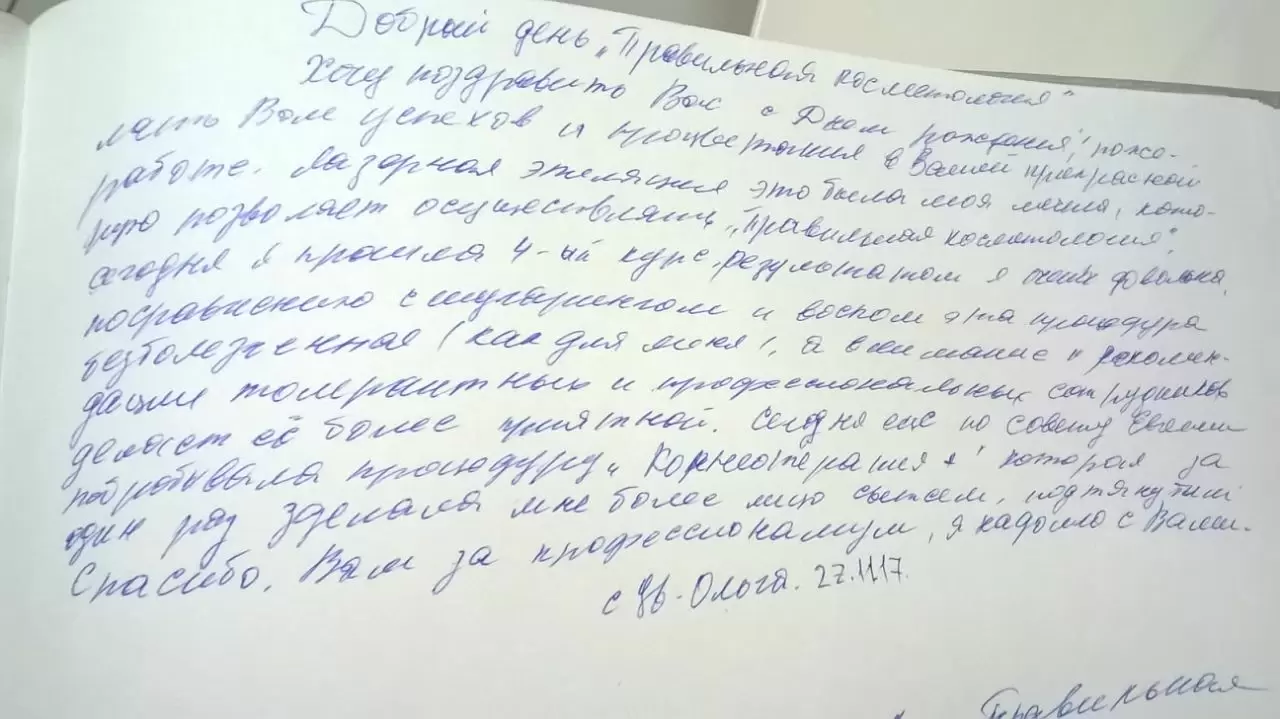 Добрый день „Правильная косметология"
Хочу поздравить Вас с Днем рождения, поже-
лать Вам успехов и процветания в Вашей прекрасной
работе. Лазерная эпиляция это была моя мечта, кото-
рую позволяет осуществлять „Правильная косметология".
Сегодня я прошла 4-ый курс, результатом я очень довольна,
по сравнению с шугарингом и воском эта процедура
безболезненная (как для меня), а внимание и рекомен-
дации толерантных и профессиональных сотрудников
делает её более приятной. Сегодня ещё по совету Евгении
попробывала процедуру „Корнеотерапия" которая за
один раз зделала мне более лицо свежем, подтянутым
Спасибо, Вам за профессионализм, я надолго с Вами.
с ув. Ольга. 27.11.17.
Правильная